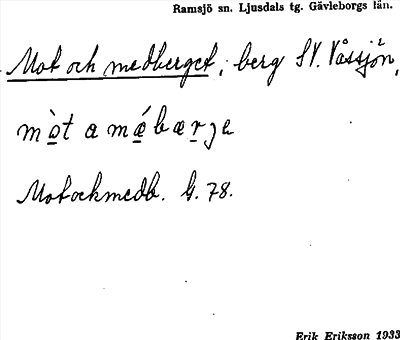 Ramsjö sn. Ljusdals tg. Gävleborgs län.
Mot och medberget; berg SV. Våssjön,
mòt a mǽbærje
Motockmedb. G. 78.
Erik Eriksson 1933